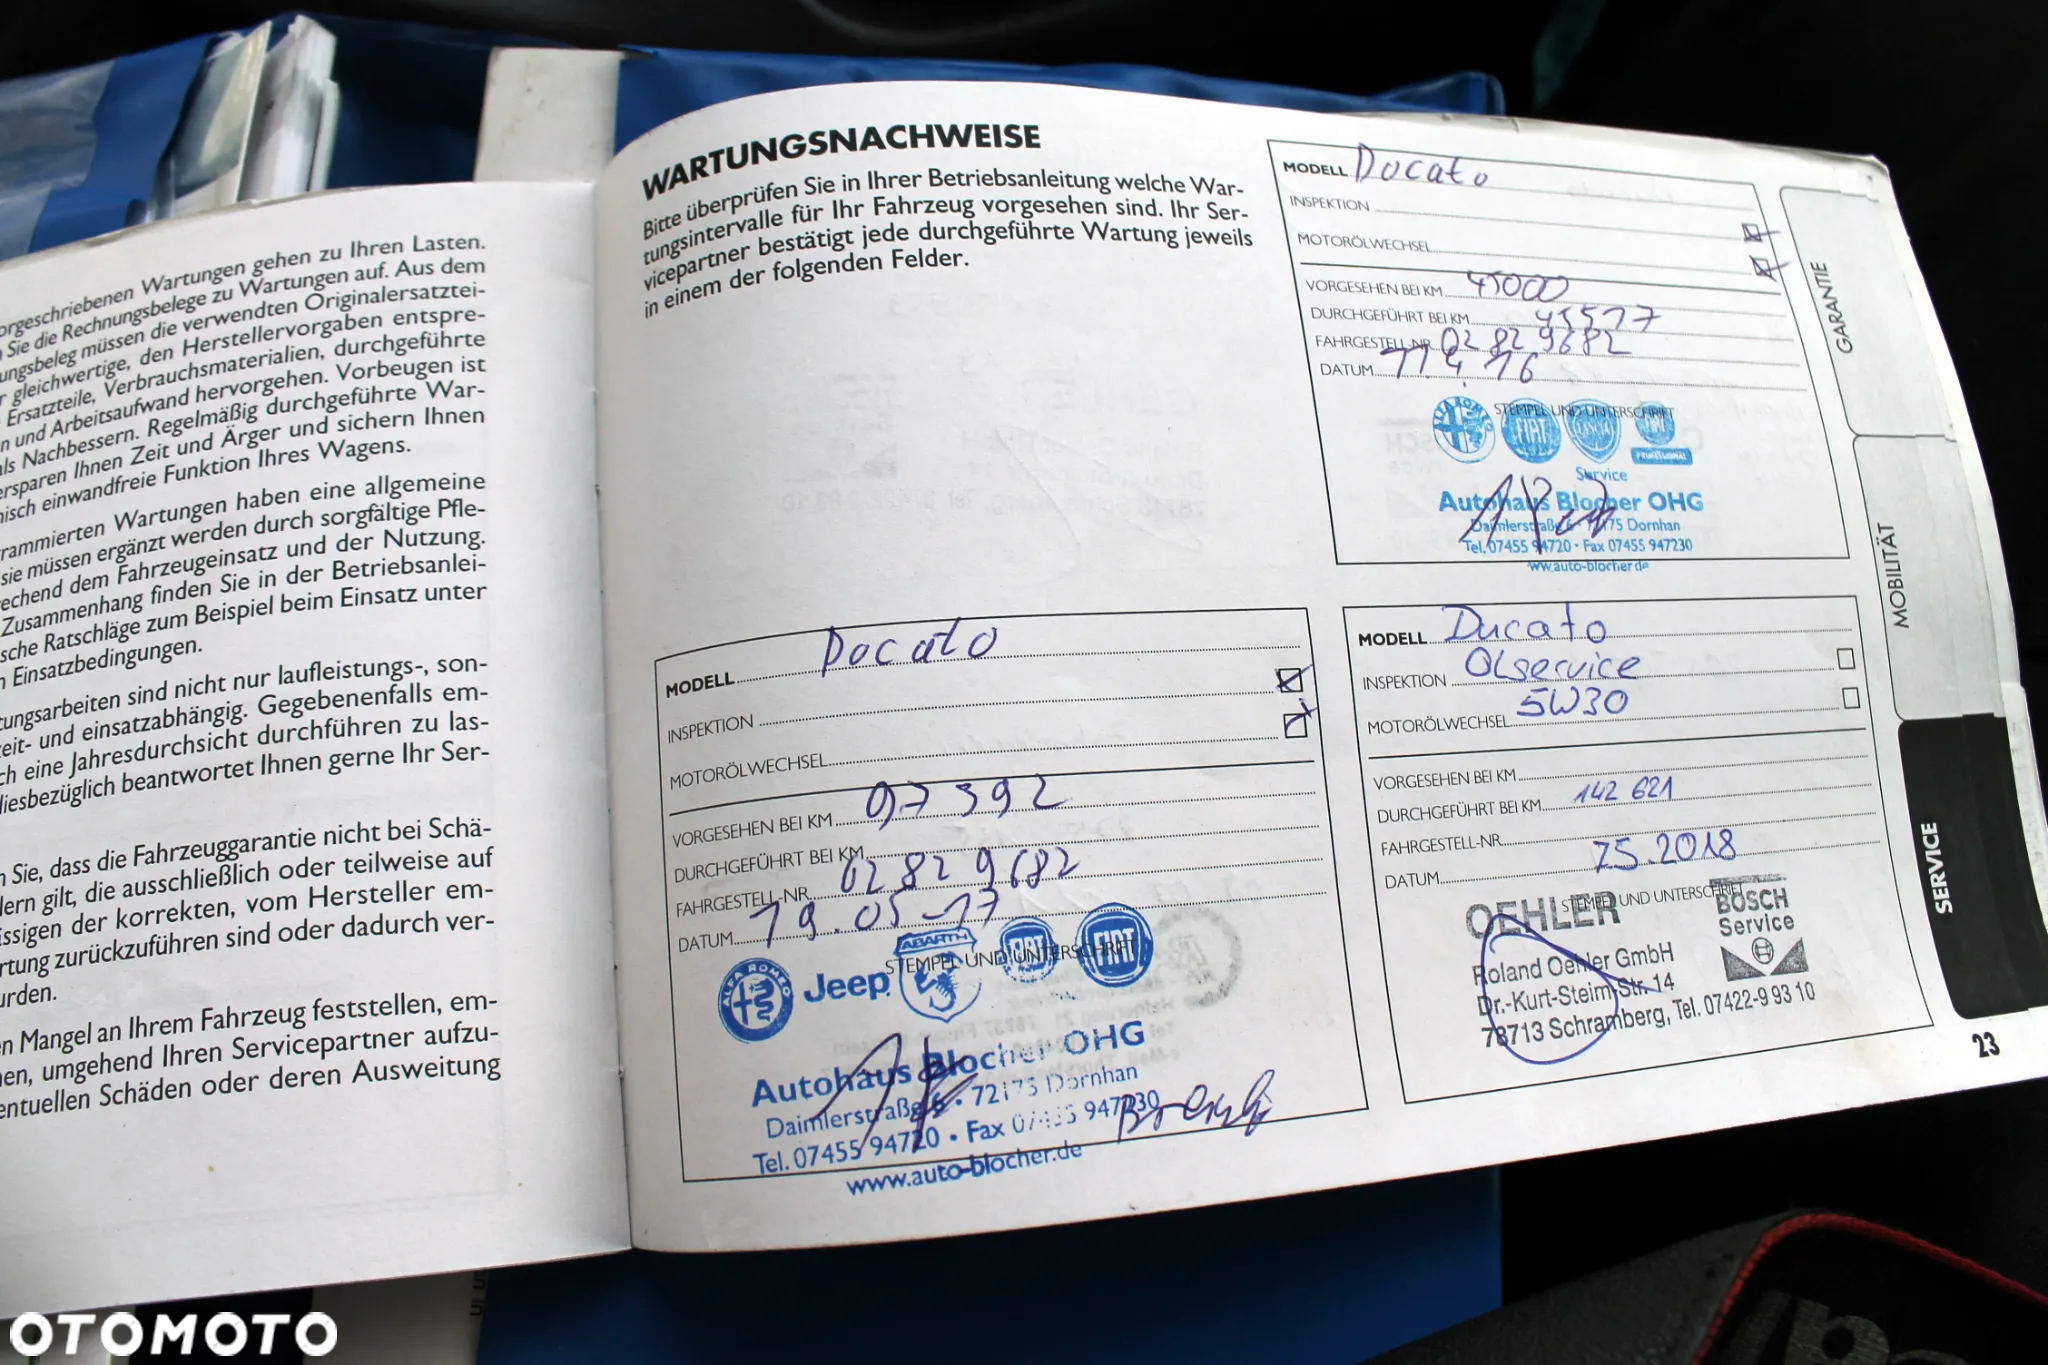 orgeschriebenen Wartungen gehen zu Ihren Lasten.
Sie die Rechnungsbelege zu Wartungen auf. Aus dem
ungsbeleg müssen die verwendten Originalersatztei-
r gleichwertige, den Herstellervorgaben entspre-
Ersatzteile, Verbrauchsmaterialien, durchgeführte
n und Arbeitsaufwand hervorgehen. Vorbeugen ist
als Nachbessern. Regelmäßig durchgeführte War-
ersparen Ihnen Zeit und Ärger und sichern Ihnen
nisch einwandfreie Funktion Ihres Wagens.
rammierten Wartungen haben eine allgemeine
sie müssen ergänzt werden durch sorgfältige Pfle-
echend dem Fahrzeugeinsatz und der Nutzung.
Zusammenhang finden Sie in der Betriebsanlei-
sche Ratschläge zum Beispiel beim Einsatz unter
n Einsatzbedingungen.
tungsarbeiten sind nicht nur laufleistungs-, son-
zeit- und einsatzabhängig. Gegebenenfalls em-
ch eine Jahresdurchsicht durchführen zu las-
diesbezüglich beantwortet Ihnen gerne Ihr Ser-
n Sie, dass die Fahrzeuggarantie nicht bei Schä-
dern gilt, die ausschließlich oder teilweise auf
ssigen der korrekten, vom Hersteller em-
rtung zurückzuführen sind oder dadurch ver-
urden.
en Mangel an Ihrem Fahrzeug feststellen, em-
nen, umgehend Ihren Servicepartner aufzu-
entuellen Schäden oder deren Ausweitung
WARTUNGSNACHWEISE
Bitte überprüfen Sie in Ihrer Betriebsanleitung welche War-
tungsintervalle für Ihr Fahrzeug vorgesehen sind. Ihr Ser-
vicepartner bestätigt jede durchgeführte Wartung jeweils
in einem der folgenden Felder.
MODELL Ducato
INSPEKTION
MOTORÖLWECHSEL
VORGESEHEN BEI KM 45000
DURCHGEFÜHRT BEI KM 45517
FAHRGESTELL-NR. 02829682
DATUM 11.4.16
STEMPEL UND UNTERSCHRIFT
ALFA ROMEO FIAT LANCIA FIAT PROFESSIONAL
Service
Autohaus Blocher OHG
Daimlerstraße 6 · 72175 Dornhan
Tel. 07455 94720 · Fax 07455 947230
www.auto-blocher.de
MODELL Ducato
INSPEKTION
MOTORÖLWECHSEL
VORGESEHEN BEI KM 97392
DURCHGEFÜHRT BEI KM
FAHRGESTELL-NR. 02829682
DATUM 19.05-17
STEMPEL UND UNTERSCHRIFT
ALFA ROMEO Jeep ABARTH FIAT FIAT
Autohaus Blocher OHG
Daimlerstraße 6 · 72175 Dornhan
Tel. 07455 94720 · Fax 07455 947230
www.auto-blocher.de
MODELL Ducato
INSPEKTION Ölservice
MOTORÖLWECHSEL 5W30
VORGESEHEN BEI KM
DURCHGEFÜHRT BEI KM 142 621
FAHRGESTELL-NR.
DATUM 7.5.2018
STEMPEL UND UNTERSCHRIFT
OEHLER BOSCH
Service
Roland Oehler GmbH
Dr.-Kurt-Steim-Str. 14
78713 Schramberg, Tel. 07422-9 93 10
GARANTIE
MOBILITÄT
SERVICE
23
OTOMOTO